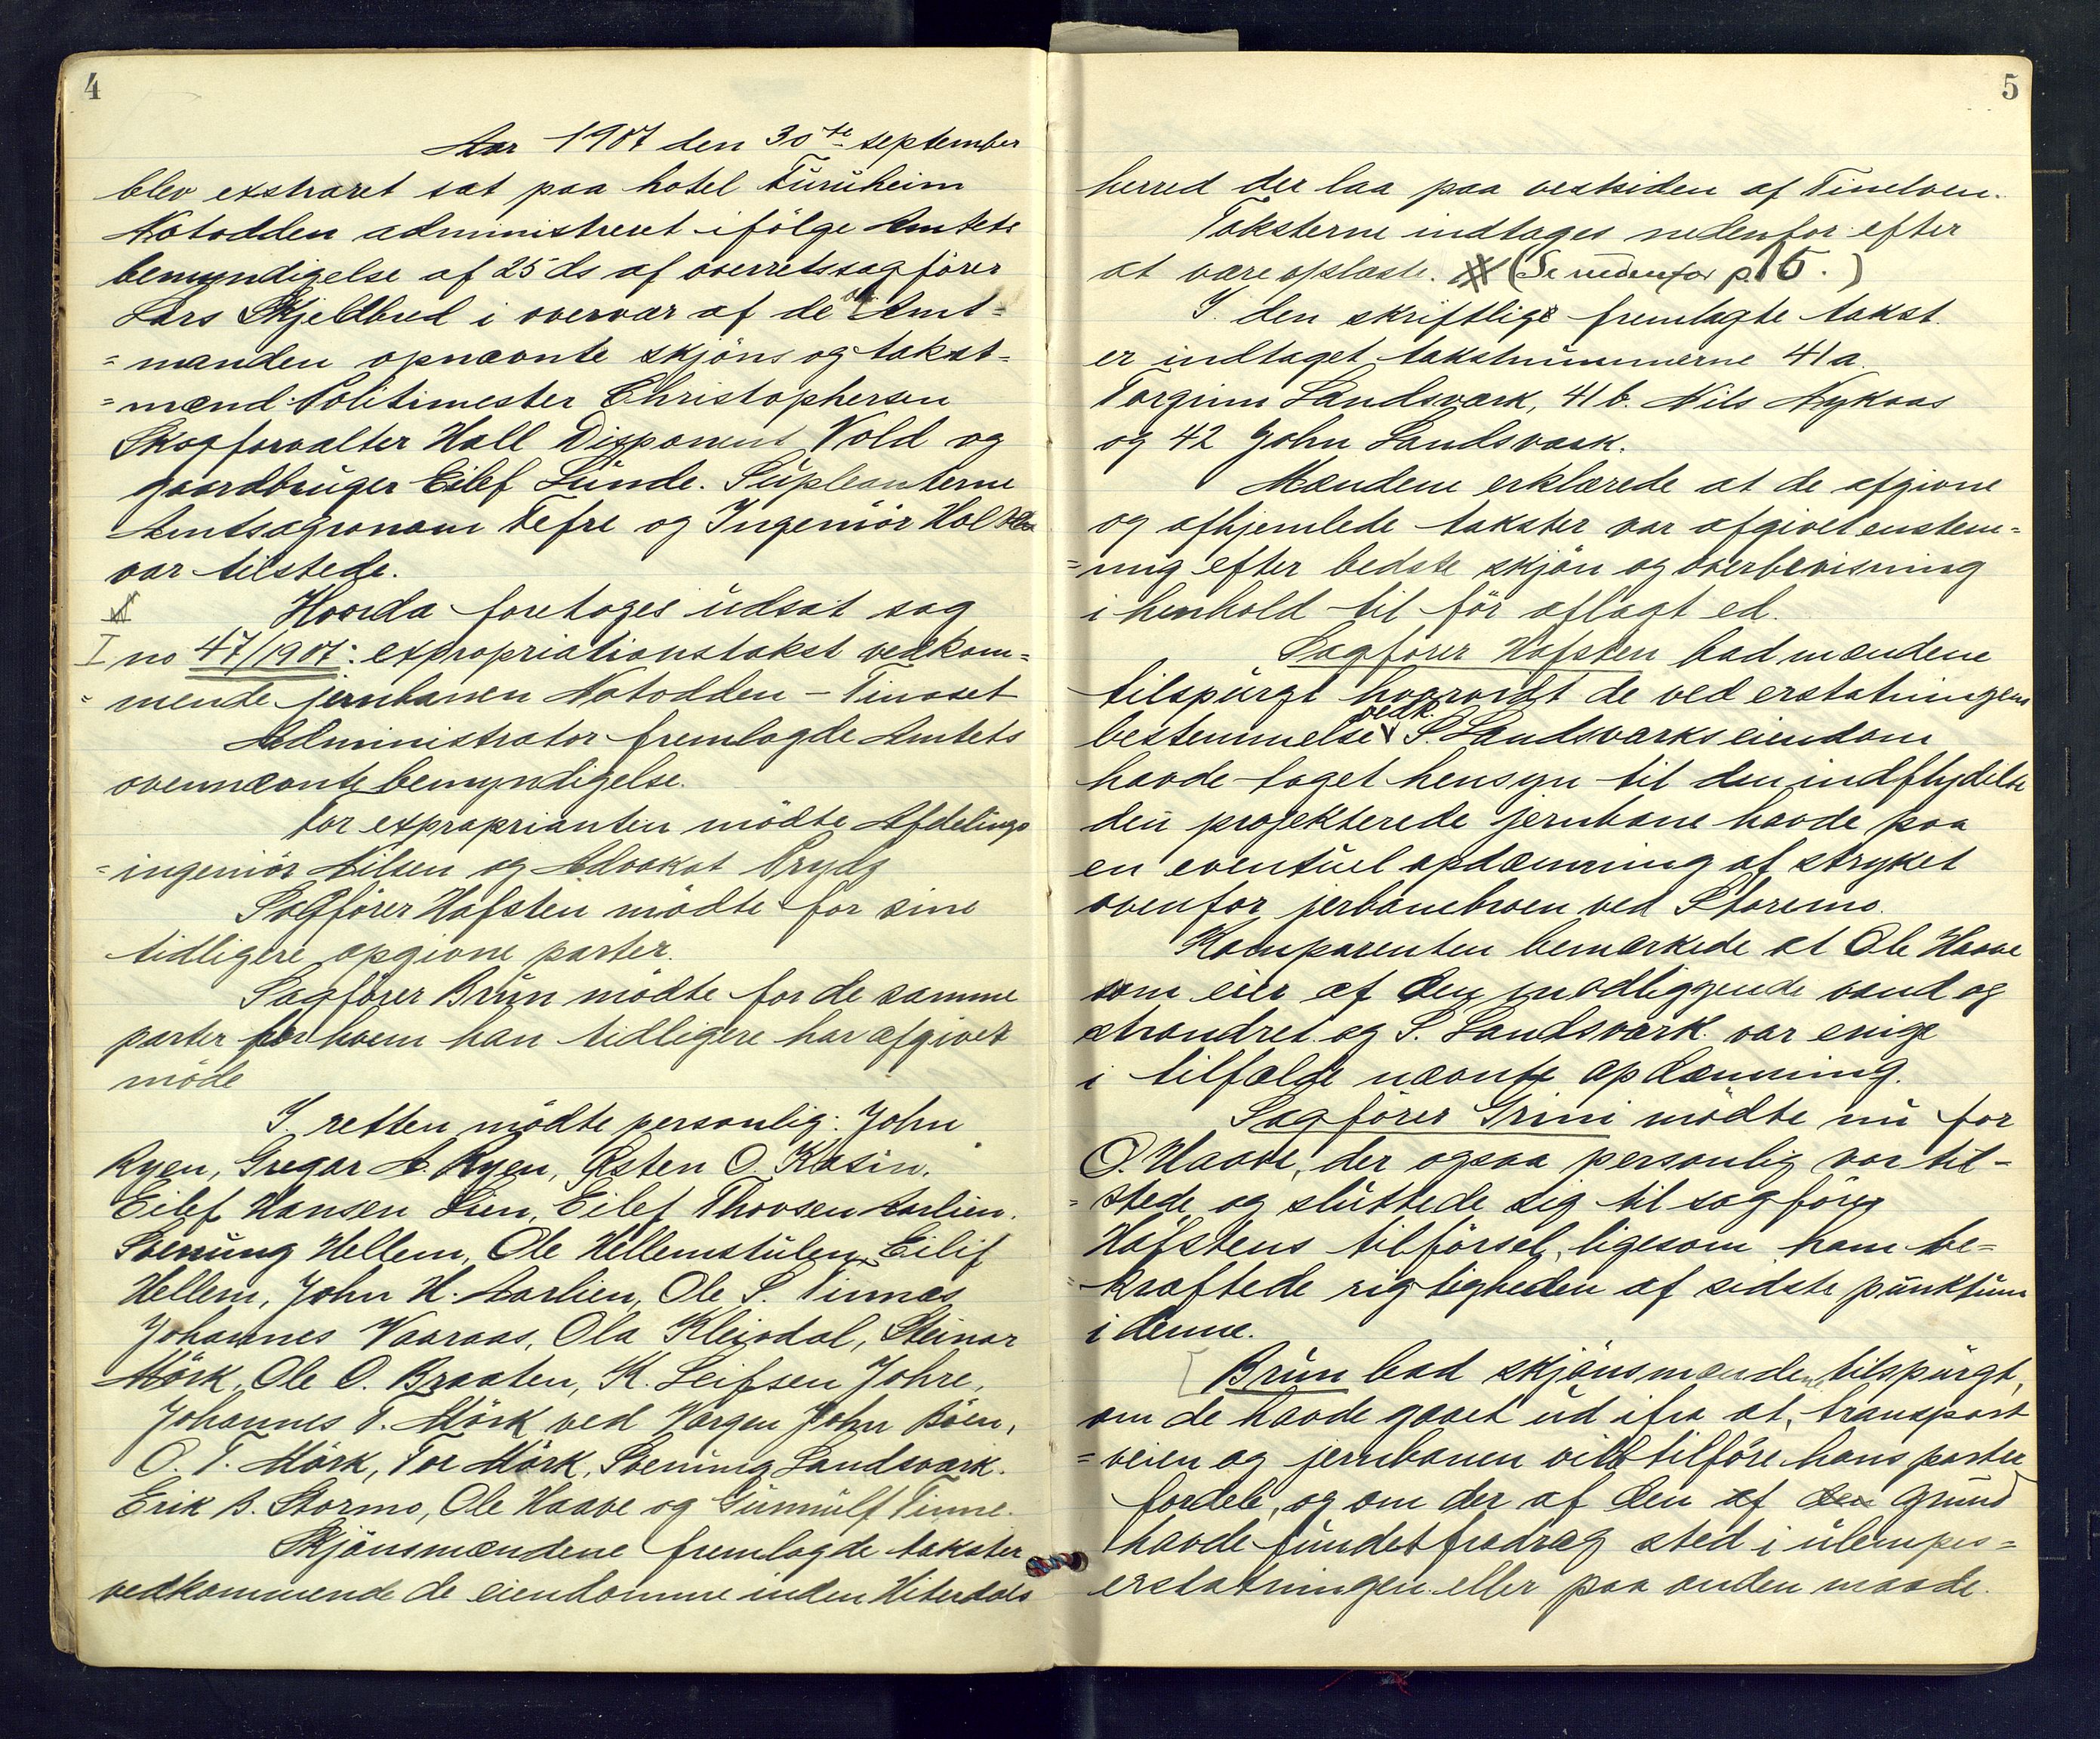 4
Aar 1907 den 30te september
blev exstraret sat paa hotel Furuheim
Notodden administreret ifölge Amtets
bemyndigelse af 25 ds af overretssagförer
Lars Skjeldbred i overvær af de af Amt=
=manden opnævnte skjöns og takst=
=mænd Politimester Christophersen
Skogforvalter Hall Disponent Vold og
gaardbruger Eilef Lunde. Supleanterne
Amtsagronom Tefre og Ingeniör Holst
var tilstede.
Hvorda foretoges udsat sag
I no 47/1907: expropriationstakst vedkom=
=mende jernbanen Notodden - Tinoset
Administrator fremlagde Amtets
ovennævnte bemyndigelse.
For exproprianten mödte Afdelings
=ingeniör Nilsen og Advokat Pryds
Sagförer Hofsten mödte for sine
tidligere opgivne parter.
Sagförer Brun mödte for de samme
parter for hvem han tidligere har afgivet
möde
I retten mödte personlig: John
Ryen, Gregar A. Ryen, Östen O. Kasin,
Eilef Hansen Lien, Eilef Thovsen Aarlien.
Svenung Hellem, Ole Hellemstulen, Eilif
Hellem, John H. Aarlien, Ole S. Tinnæs
Johannes Vaaraas, Ola Kleivdal, Steinar
Mörk, Ole O. Braaten, K. Leifsen Johre,
Johannes T. Mörk ved Værgen John Böen,
O. T. Mörk, Tor Mörk, Svenung Landsværk.
Erik B. Stormo, Ole Haave og Gunnulf Tinne.
Skjönsmændene fremlagde takster
vedkommende de eiendomme inden Hiterdals
5
herred der laa paa vestsiden af Tinelven.
Taksterne indtages nedenfor efter
at være oplæste. # (Se nedenfor p. 15.)
I den skriftlige fremlagte takst
er indtaget takstnummerne 41a
Torginn Landsværk, 41b. Nils Nykaas
og 42 John Landsværk.
Mændene erklærede at de afgivne
og afhjemlede takster var afgivet enstem=
=mig efter bedste skjön og overbevisning
i henhold til för aflagt ed.
Sagförer Hofsten bad mændene
tilspurgt hvorvidt de ved erstatningens
bestemmelse vedk. S. Landsværks eiendom
havde taget hensyn til den indflydelse
den projekterede jernbane havde paa
en eventuel opdæmning af stryket
ovenfor jerbanebroen ved Storemo.
Komparenten bemærkede at Ole Haave
som eier af den modliggende vand og
strandret og S. Landsværk var enige
i tilfælde nævnte opdæmning.
Sagförer Grini mödte nu for
O. Haave, der ogsaa personlig var til-
=stede og sluttede sig til sagförer
Hofstens tilförsel, ligesom han be=
=kræftede rigtigheden af sidste punktum
i denne.
Brun bad skjönsmændene tilspurgt,
om de havde gaaet ud ifra at, transport
=veien og jernbanen vil tilföre hans parter
fordele, og om der af den af den grund
havde fundet fradrag sted i ulempes=
erstatningen eller paa anden maade.